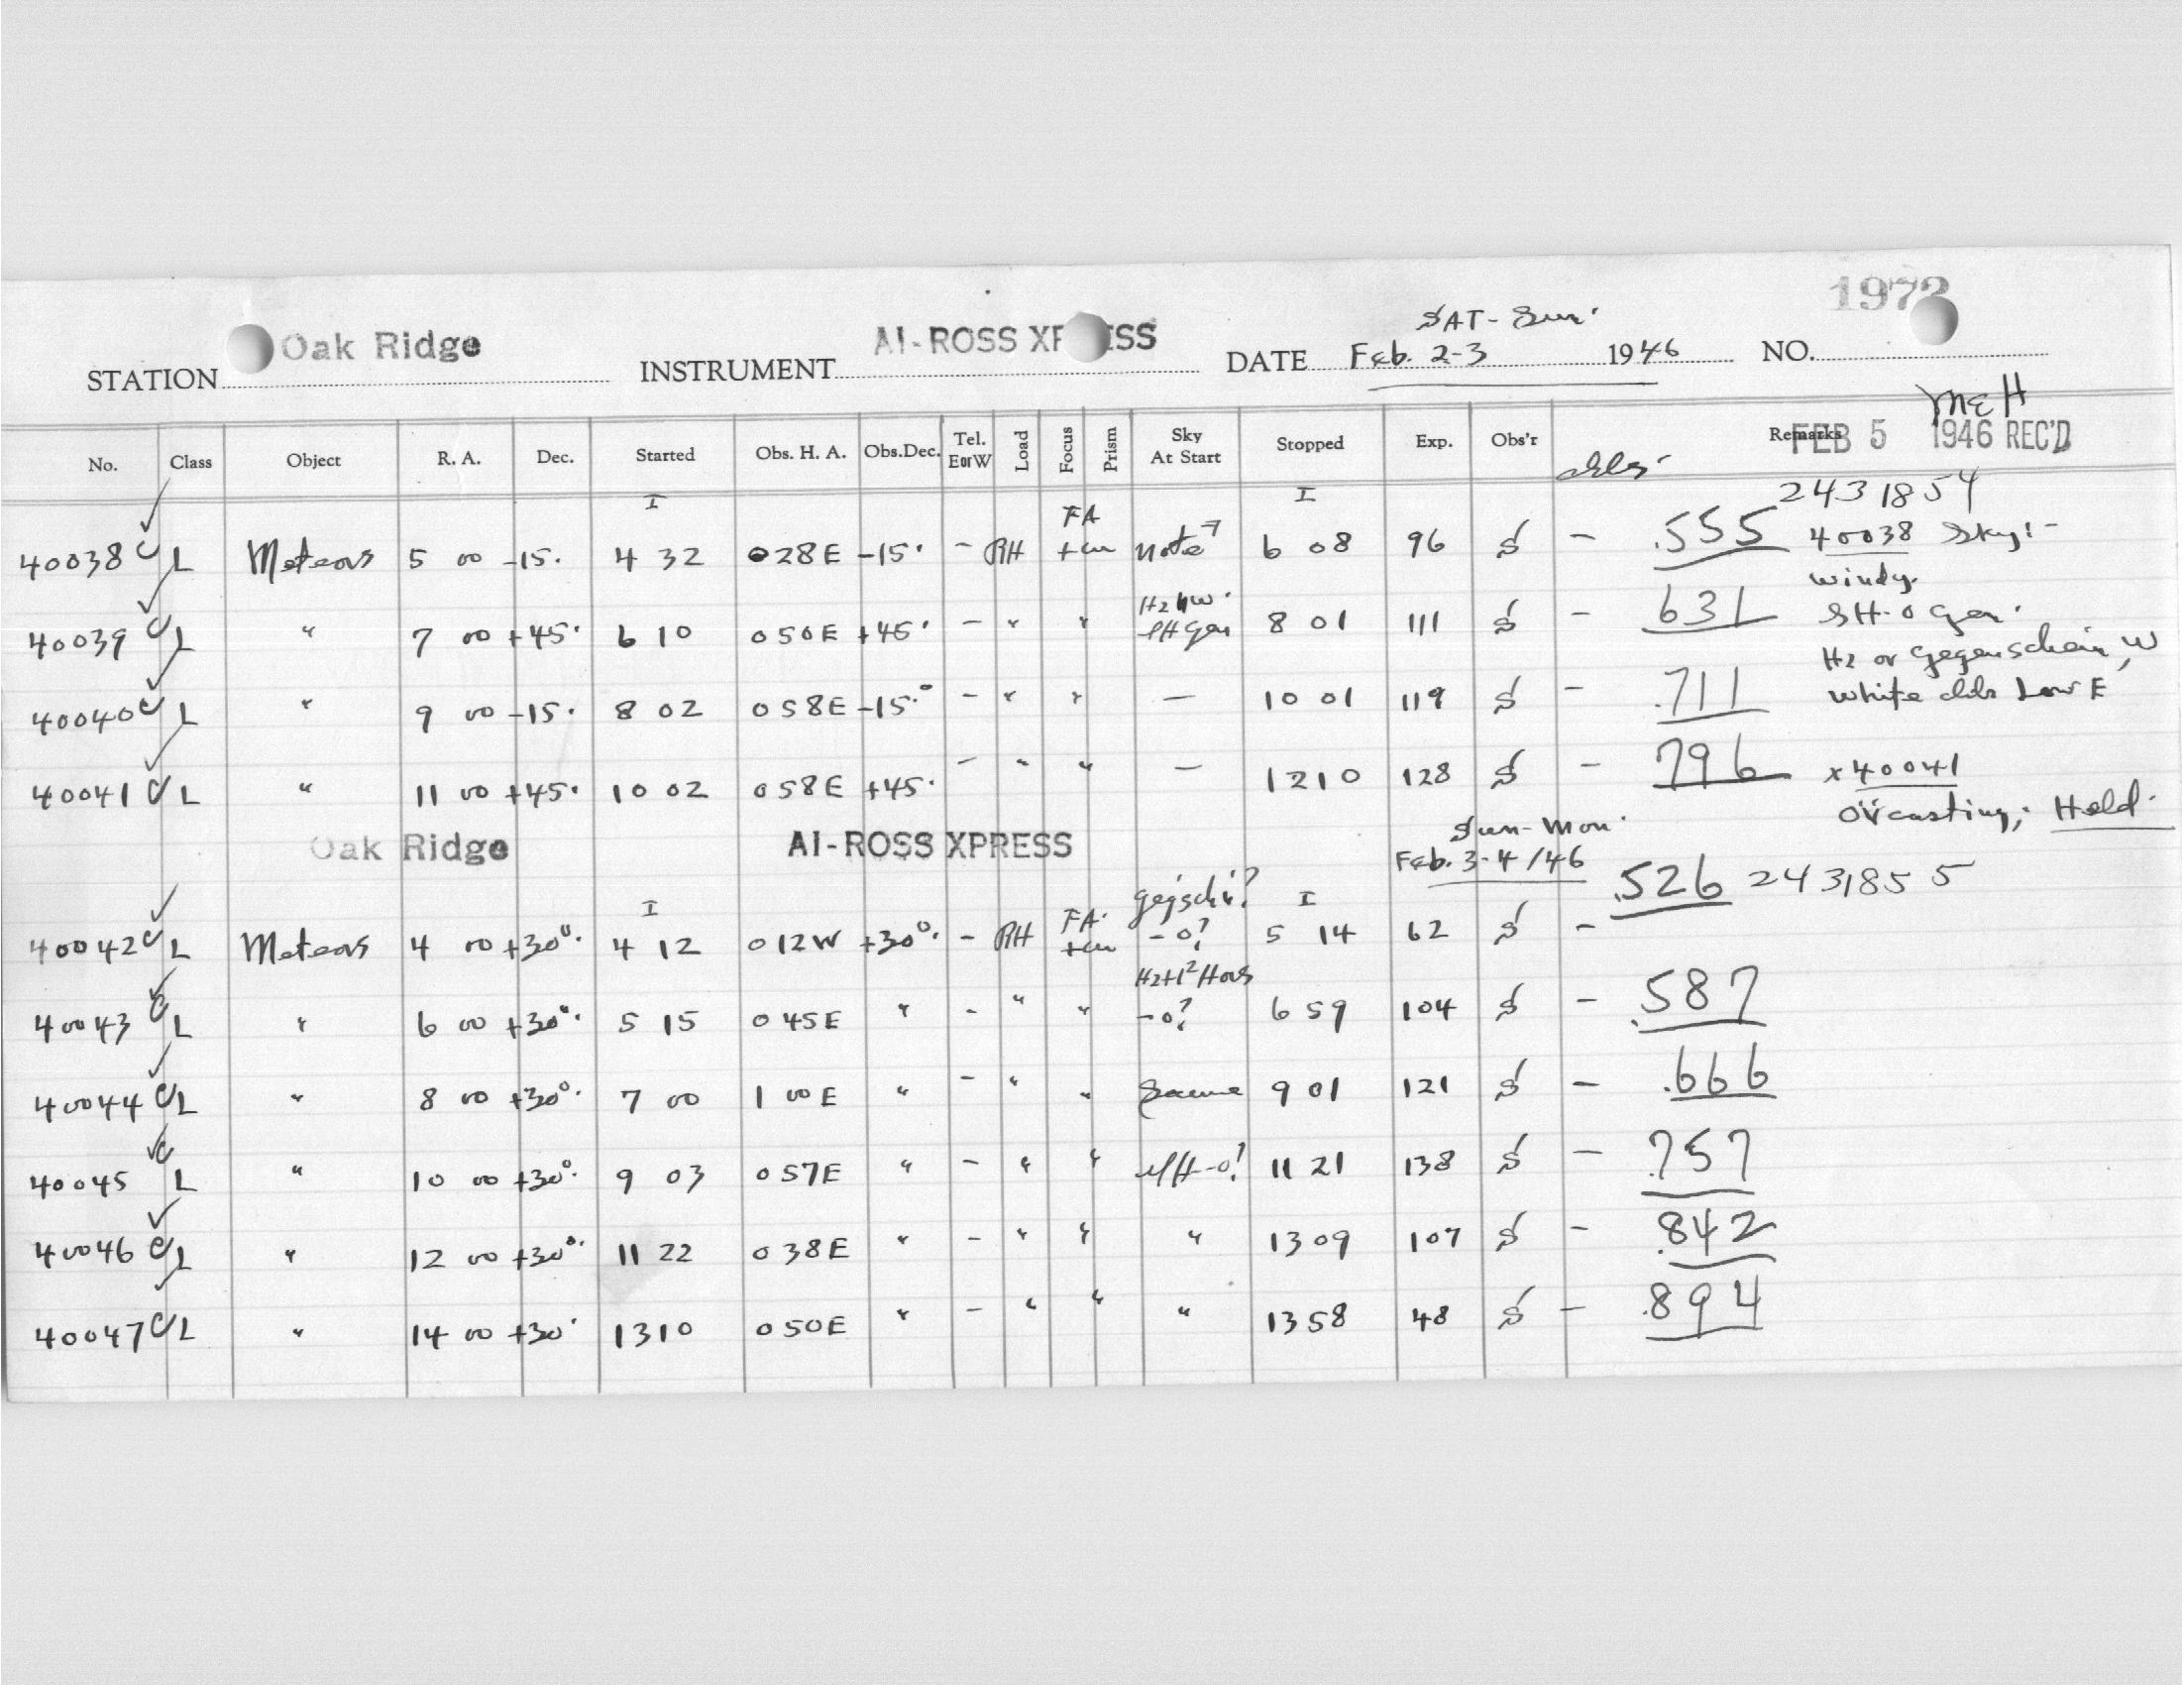 1973
SAT - Sun.
STATION Oak Ridge INSTRUMENT AI-ROSS XPRESS DATE Feb. 2-3 1946 NO.
MEH
FEB 5 1946 REC'D
No. Class Object R. A. Dec. Started Obs. H. A. Obs.Dec. Tel. E or W Load Focus Prism Sky At Start Stopped Exp. Obs'r Remarks
I I 2431854
40038 C L Meteors 5 00 -15. 4 32 028E -15. - RH FA +cu note 6 08 96 S - .555 40038 Sky:-
windy.
40039 C L " 7 00 +45. 6 10 050E +45. - " " Hz NW. SH gen 8 01 111 S - 631 SH-o gen.
Hz or Gegenschein, W
40040 C L " 9 00 -15. 8 02 058E -15.° - " " - 10 01 119 S - .711 white clds Low E
40041 C L " 11 00 +45. 10 02 058E +45. - " " - 12 10 128 S - 796 x 40041
ov'casting; Held.
Oak Ridge AI-ROSS XPRESS Sun-Mon.
Feb. 3-4/46
.526 2431855
I I
40042 C L Meteors 4 00 +30°. 4 12 012W +30°. - RH FA. +cu gegsch'? -o? 5 14 62 S -
40043 C L " 6 00 +30°. 5 15 045E " - " " -o? 6 59 104 S - .587
40044 C L " 8 00 +30°. 7 00 1 00E " - " " Same 9 01 121 S - .666
40045 C L " 10 00 +30°. 9 03 057E " - " " SH-o? 11 21 138 S - .757
40046 C L " 12 00 +30°. 11 22 038E " - " " " 13 09 107 S - .842
40047 C L " 14 00 +30° 13 10 050E " - " " " 13 58 48 S - .894